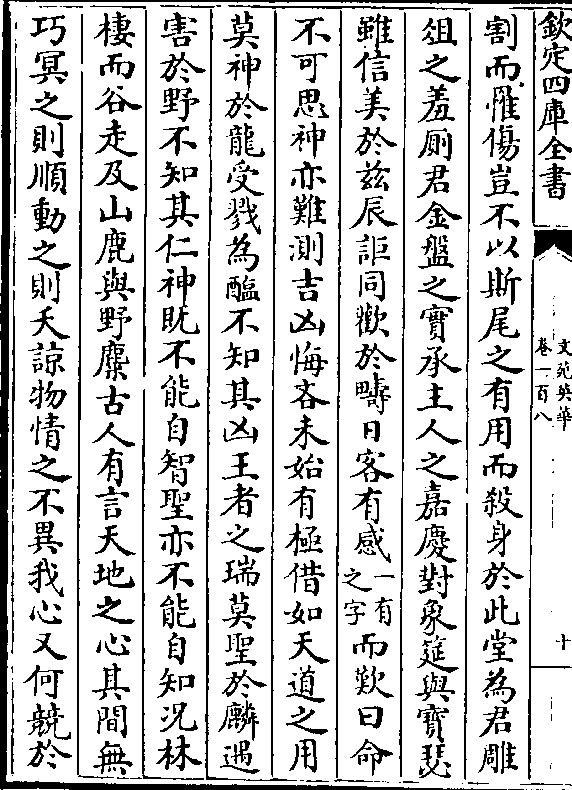 欽定四庫全書
文苑英華
卷一百八
十
割而罹傷豈不以斯尾之有用而殺身於此堂為君雕
俎之羞厠君金盤之實承主人之嘉慶對象筵與寶瑟
雖信美於兹辰詎同歡於疇日客有感一有之字而歎曰命
不可思神亦難測吉凶悔吝未始有極借如天道之用
莫神於龍受戮為醢不知其凶王者之瑞莫聖於麟遇
害於野不知其仁神旣不能自智聖亦不能自知况林
棲而谷走及山鹿與野麋古人有言天地之心其間無
巧冥之則順動之則夭諒物情之不異我心又何競於